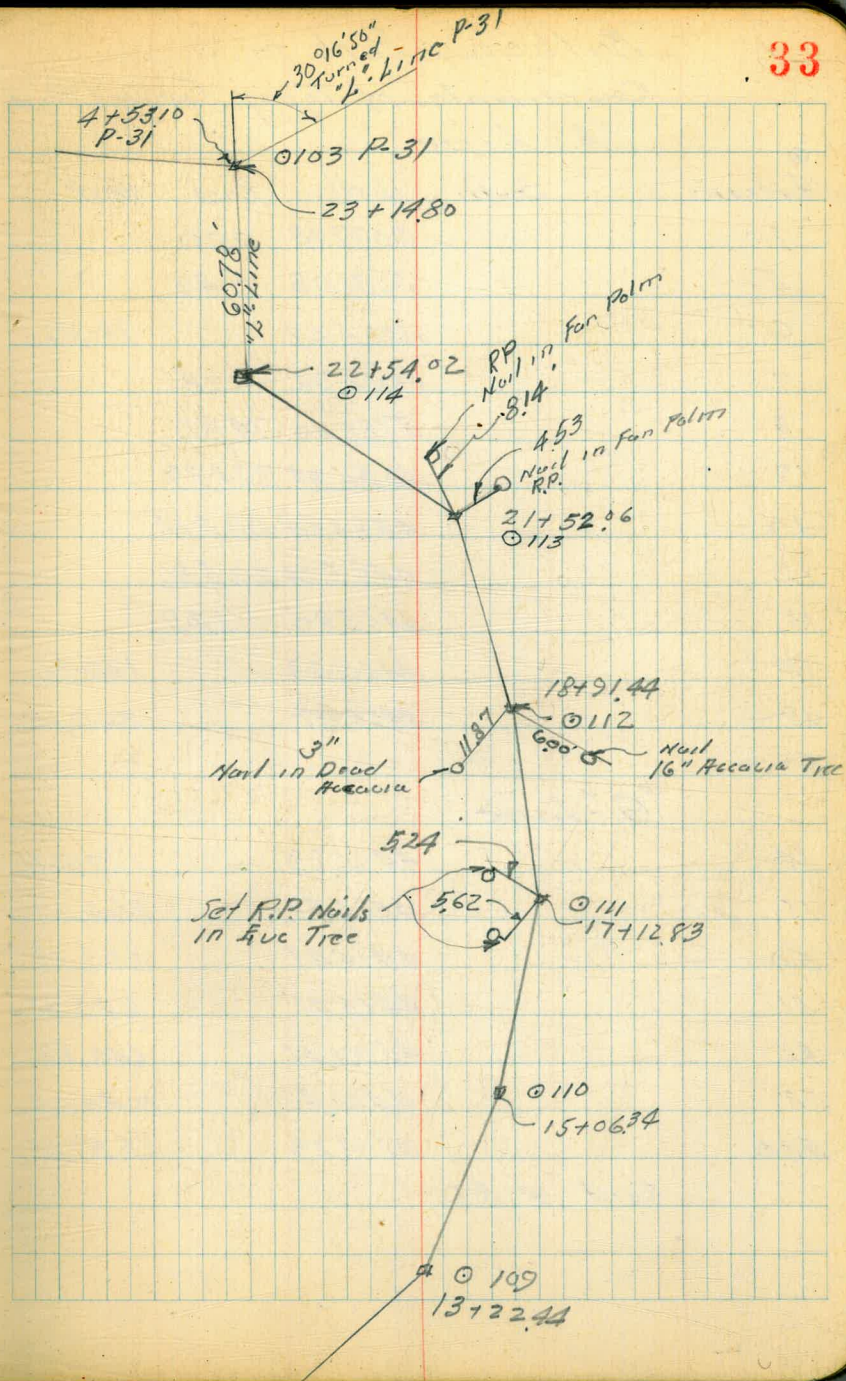 33
30°16'50"
Turned
"L" Line P-31
4+53.10
P-31
⊙103 P-31
23+14.80
60.78'
"L" Line
22+54.02
⊙114
RP
Nail in Fan Palm
8.14'
4.53
Nail in Fan Palm
R.P.
21+52.06
⊙113
18+91.44
⊙112
11.87
6.00'
Nail
16" Accacia Tree
3"
Nail in Dead
Accacia
5.24
5.62
Set R.P. Nails
in Euc Tree
⊙111
17+12.83
⊙110
15+06.34
⊙ 109
13+22.44